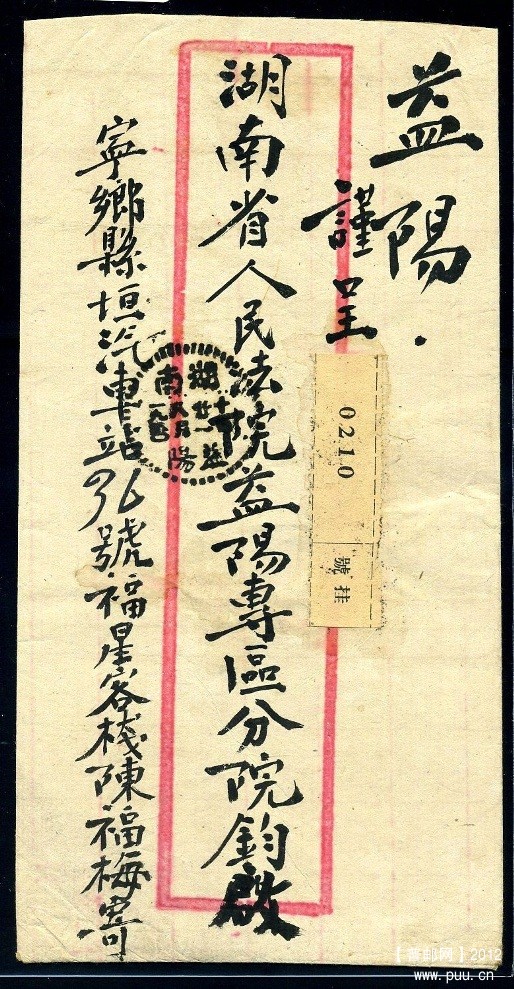 益陽.
謹呈
湖南省人民法院益陽專區分院鈞啟
寧鄉縣垣汽車站36號福星客棧陳福梅寄
0210
掛號
湖南
益陽
【蕾邮网】2012
www.puu.cn